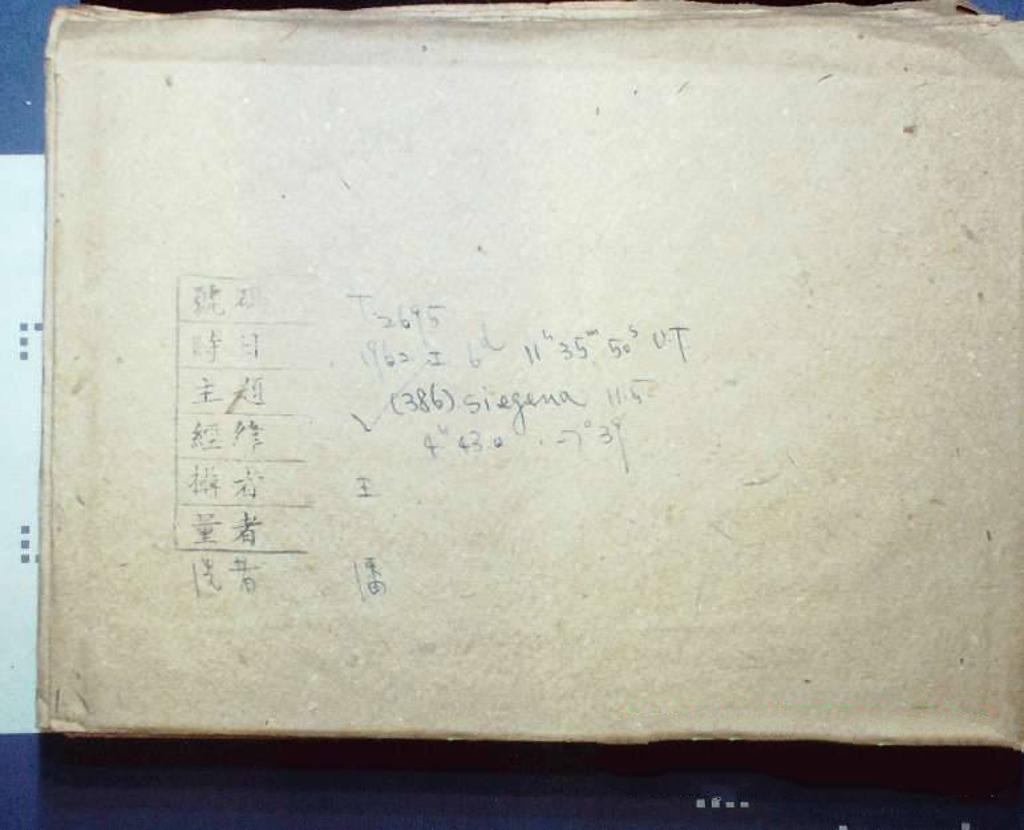 號碼 T 2695
時日 1962 I 6d 11h 35m 50s U.T
主題 (386) siegena 11.5
經緯 4h 43.0 -7° 39'
攝者 王
量者
洗者 潘